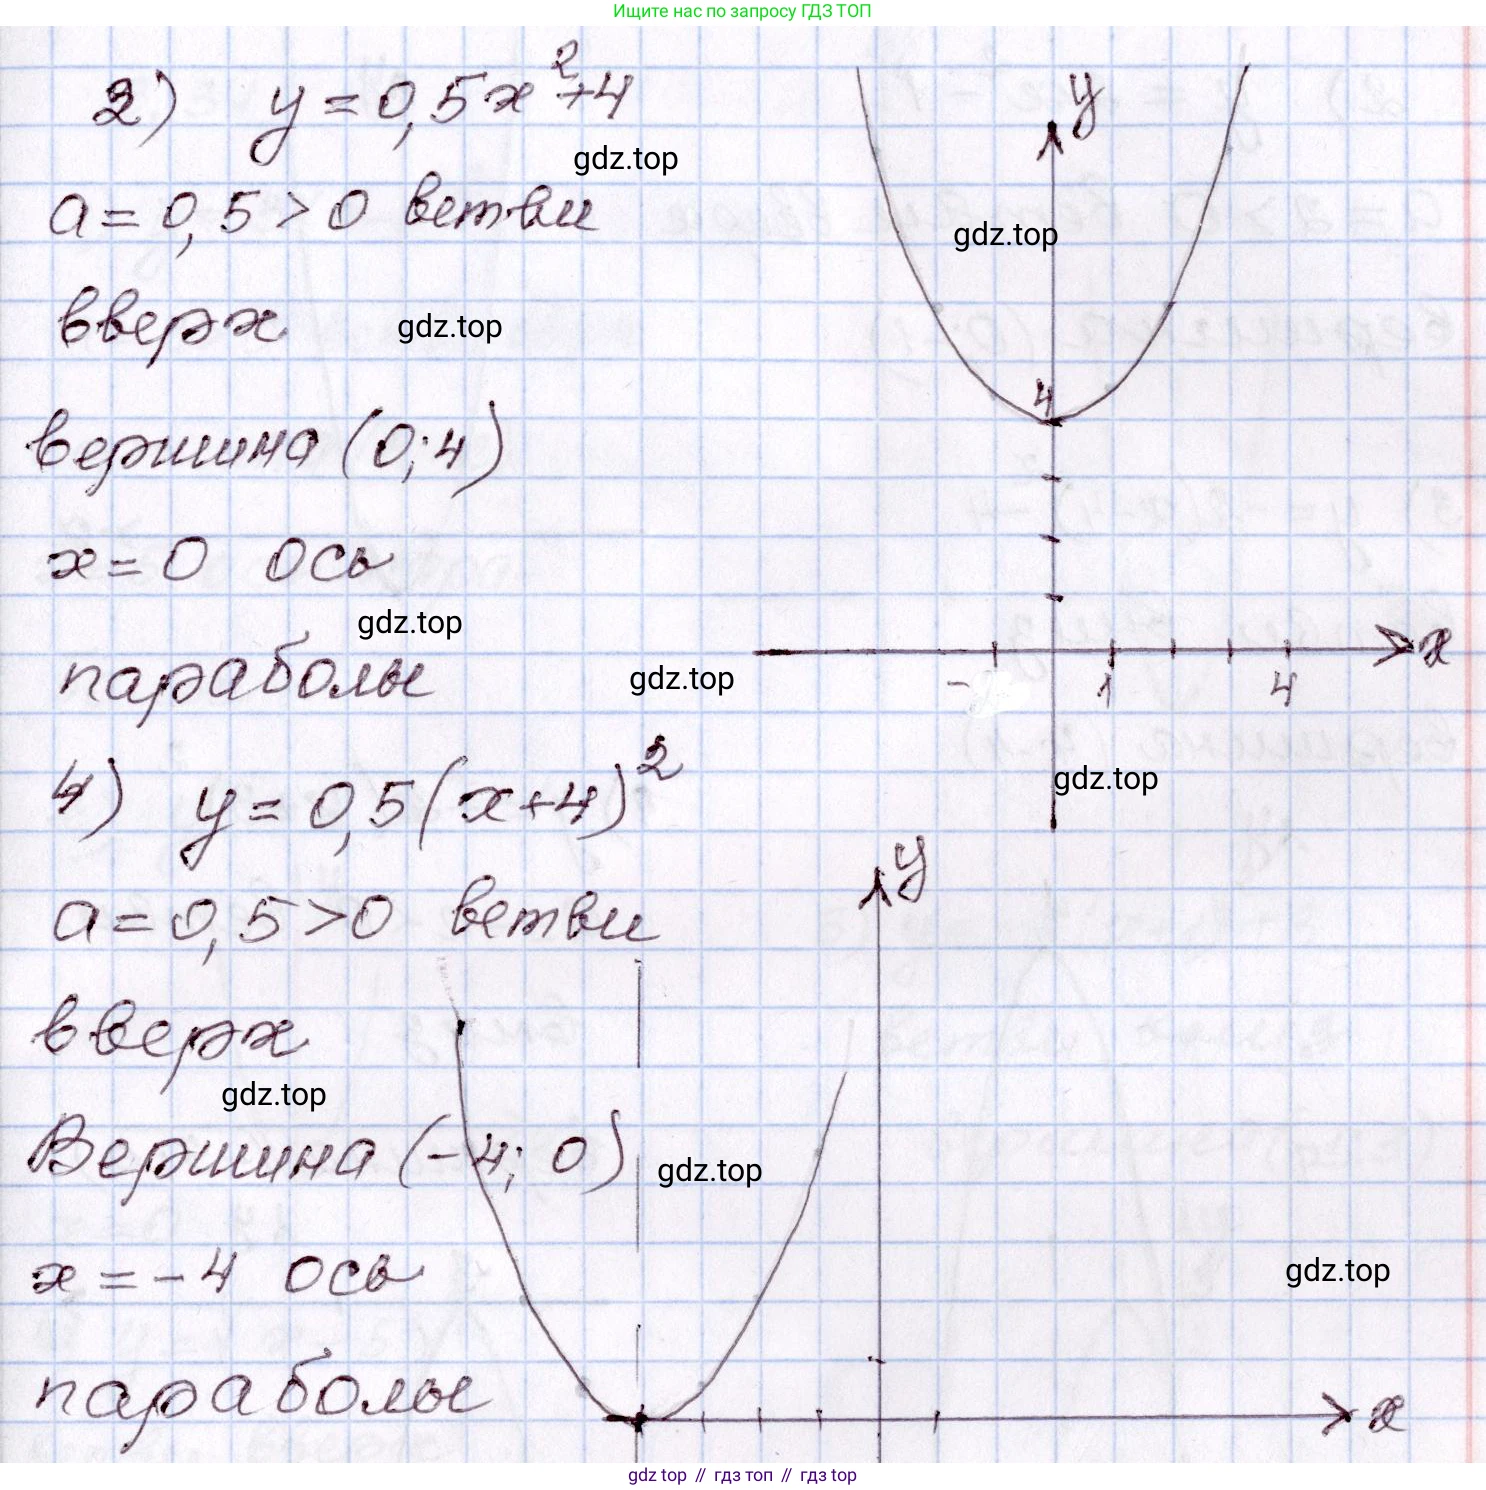 Ищите нас по запросу ГДЗ ТОП
2) y = 0,5x²+4
gdz.top
a = 0,5 > 0 ветви
gdz.top
вверх
gdz.top
вершина (0; 4)
x = 0 ось
gdz.top
параболы
gdz.top
y
4
x
-
1
4
gdz.top
4) y = 0,5(x+4)²
a = 0,5 > 0 ветви
вверх
gdz.top
Вершина (-4; 0)
gdz.top
x = -4 ось
gdz.top
параболы
y
x
gdz top // гдз топ // gdz top